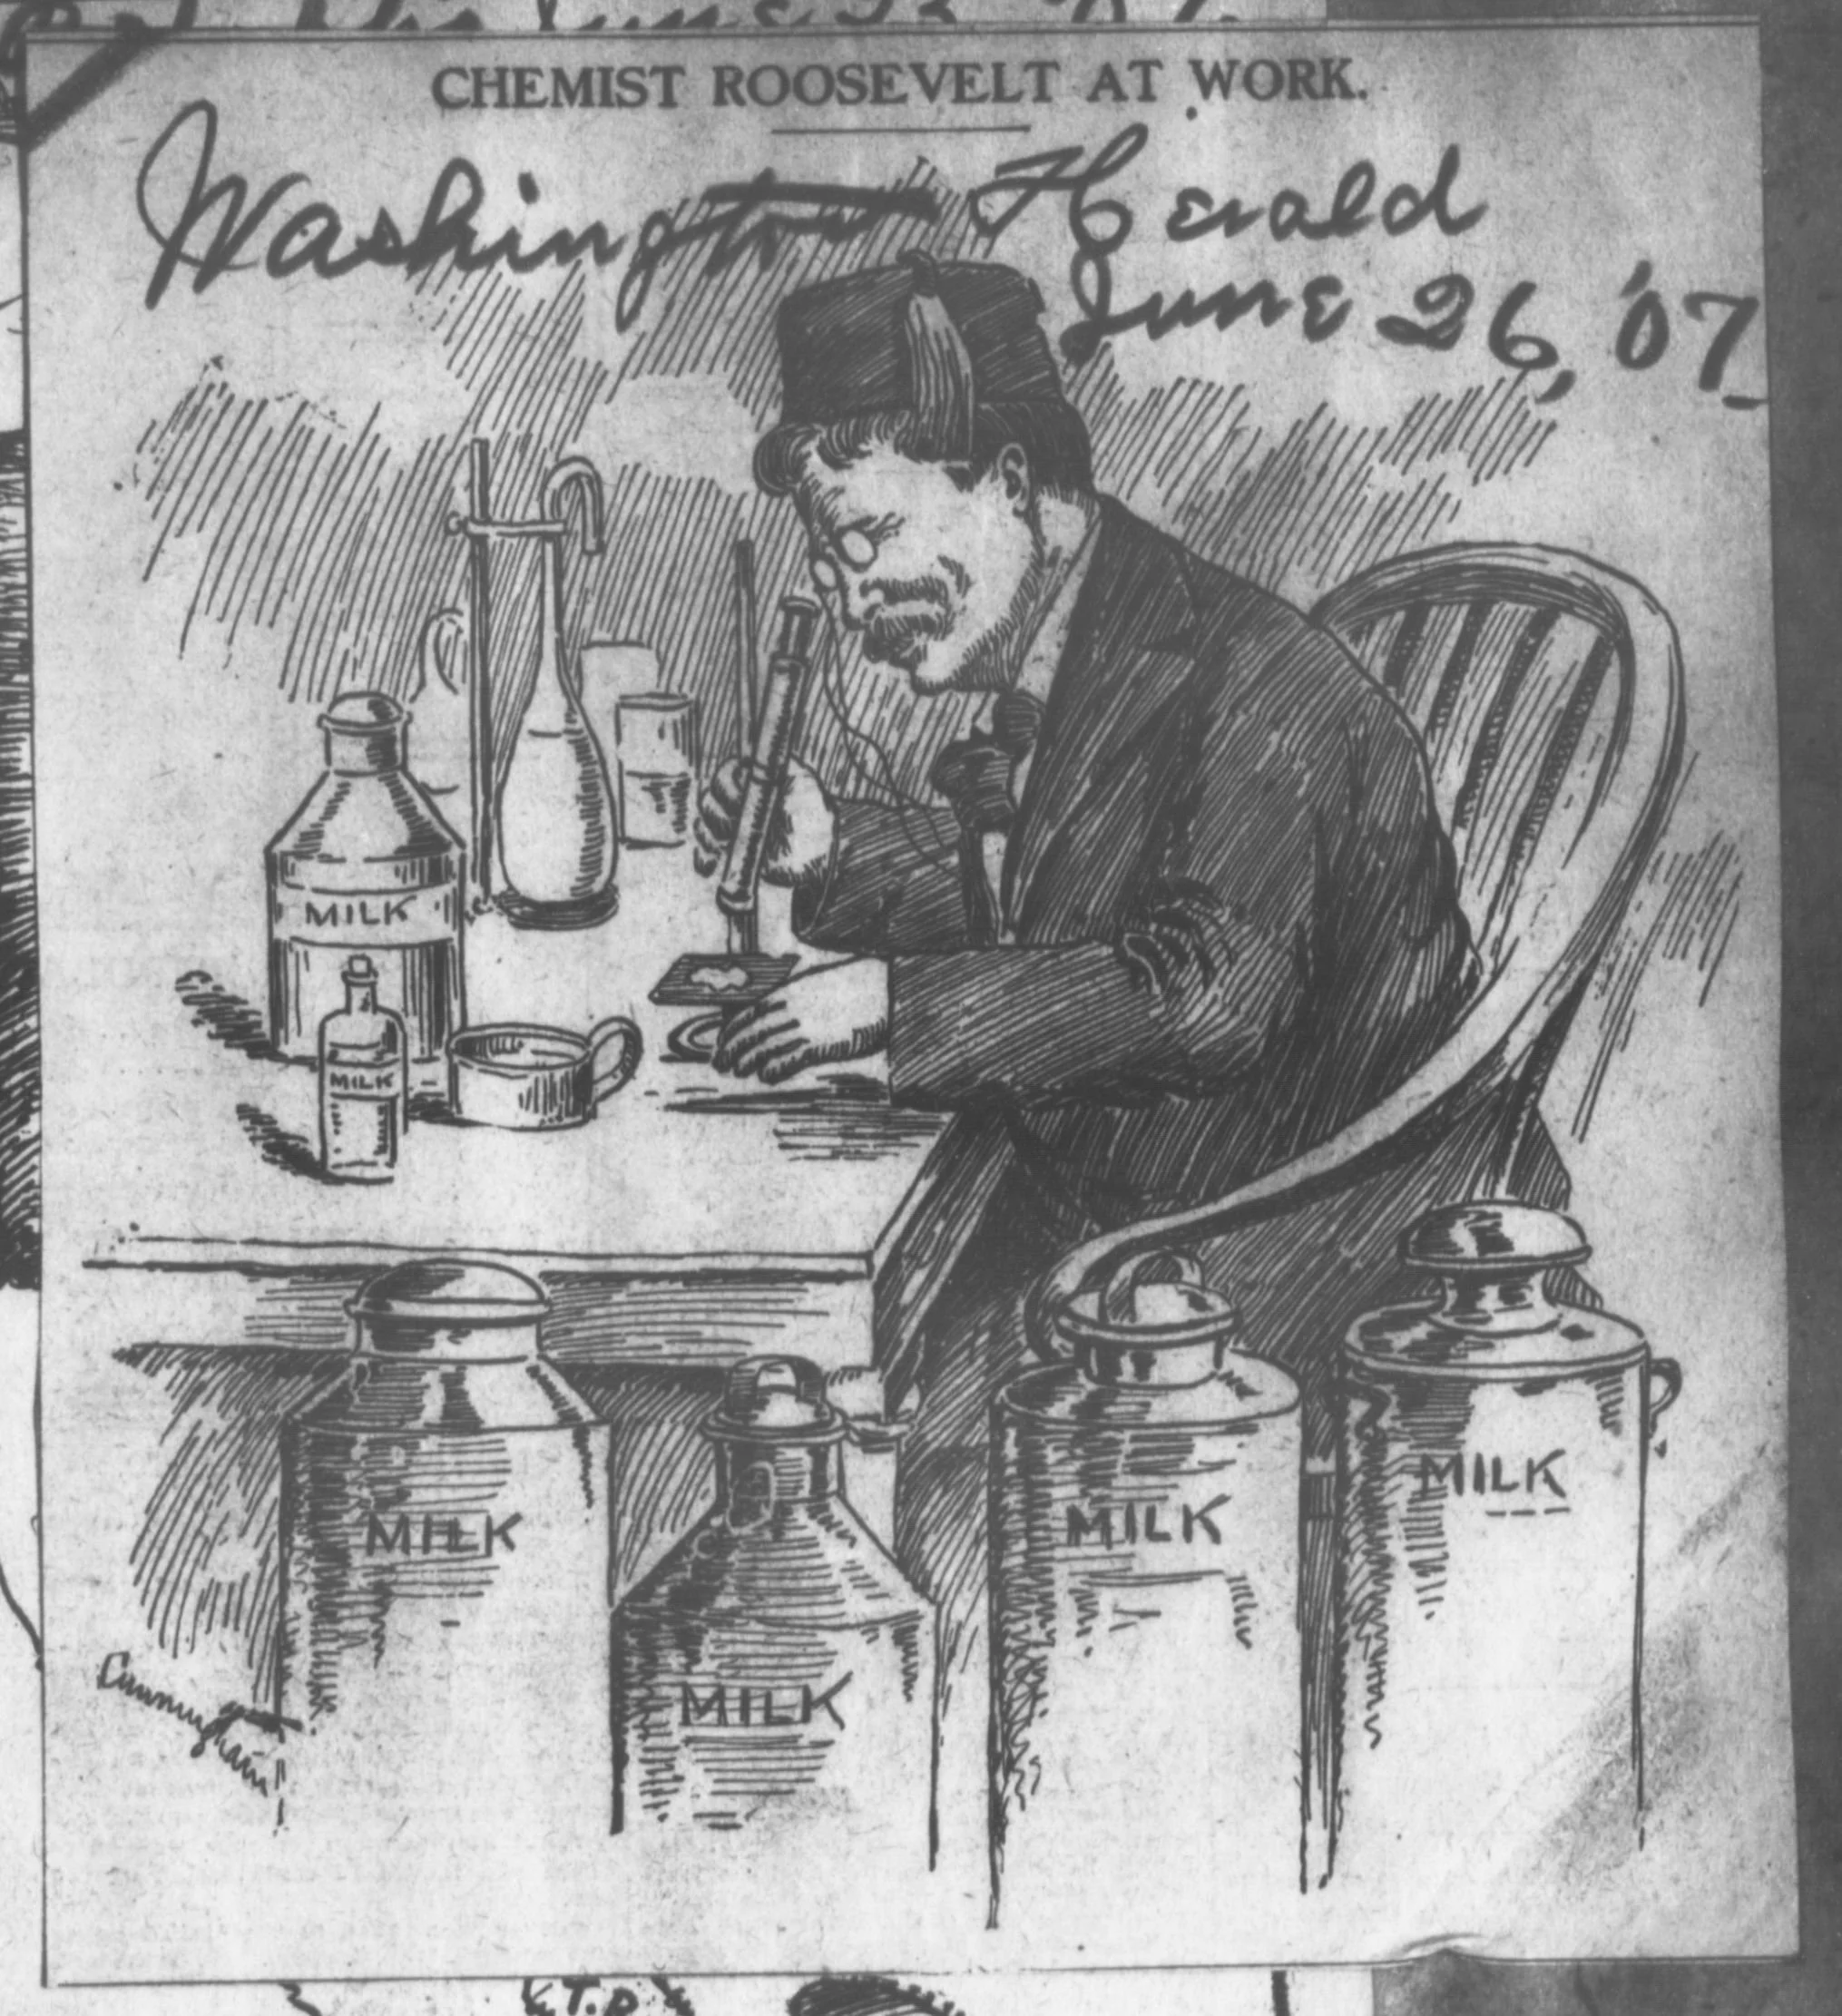 June 23 '07
CHEMIST ROOSEVELT AT WORK.
Washington Herald
June 26, '07
MILK
MILK
MILK
MILK
MILK
MILK
Cunningham
T.R